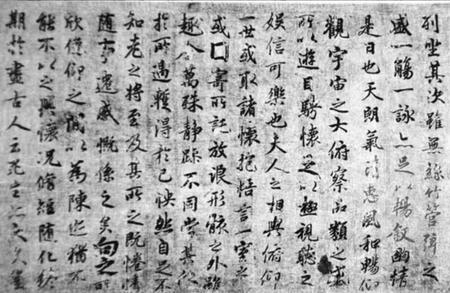 列坐其次雖無絲竹管弦之
盛一觴一詠亦足以暢敘幽情
是日也天朗氣清惠風和暢仰
觀宇宙之大俯察品類之盛
所以遊目騁懷足以極視聽之
娛信可樂也夫人之相與俯仰
一世或取諸懷抱悟言一室之
或因寄所託放浪形骸之外雖
趣舍萬殊靜躁不同當其欣
於所遇暫得於己怏然自足不
知老之將至及其所之既惓情
隨事遷感慨係之矣向之所
欣俛仰之間以為陳迹猶不
能不以之興懷況脩短隨化終
期於盡古人云死生亦大矣豈